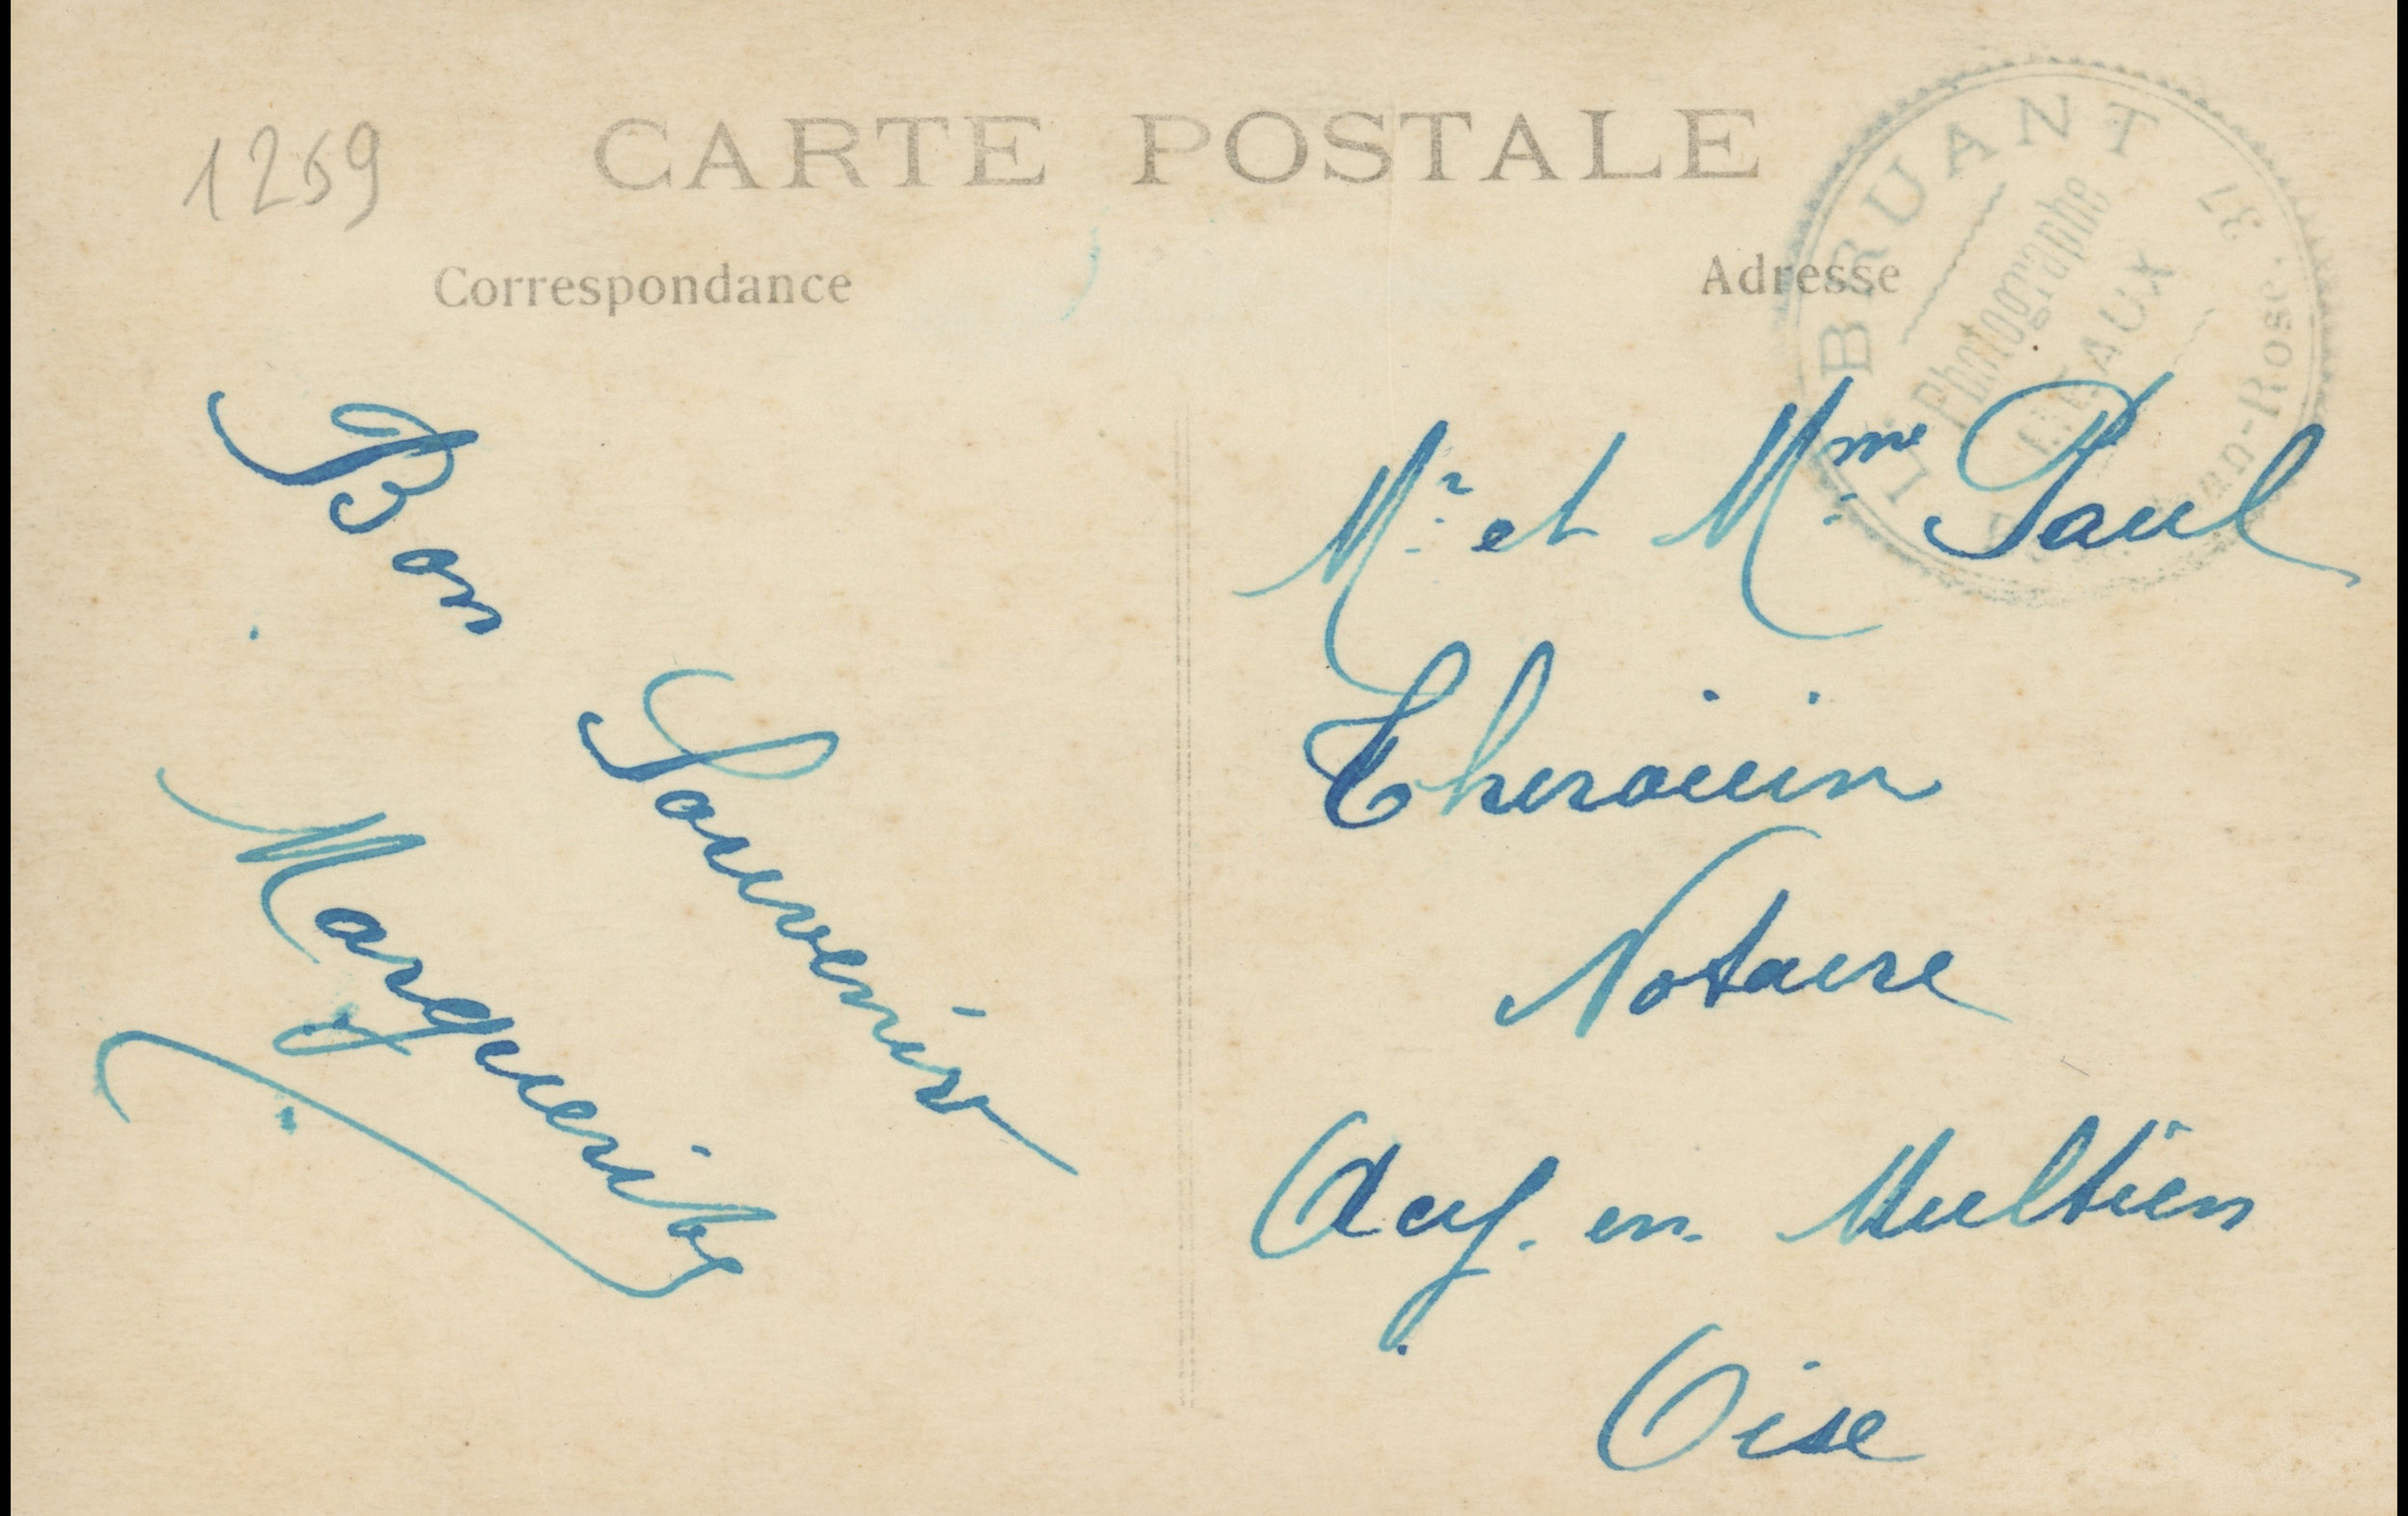 1259
CARTE POSTALE
Correspondance
Adresse
L. BRUANT
Photographe
MEAUX
37
Jean-Rose
Bon
Souvenir
Marguerite
Mr et Mme Paul
Therouin
Notaire
Acy-en-Multien
Oise